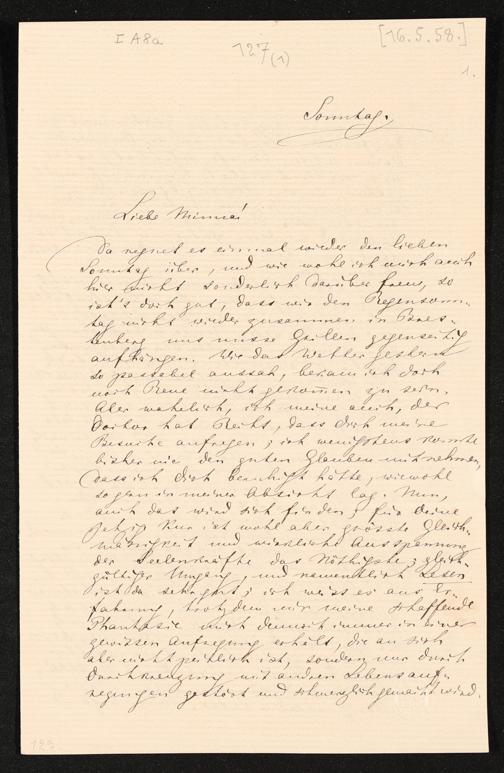 I A8a
127(1)
[16.5.58.]
1.
Sonntag.
Liebe Minna!
Da regnet es einmal wieder den lieben
Sonntag über, und wie wohl ich mich auch
hier nicht sonderlich darüber freue, so
ist's doch gut, dass wir den Regensonn-
tag nicht wieder zusammen in Bres-
tenberg uns unsre Grillen gegenseitig
aufhängen. Wie das Wetter gestern
so passabel aussah, bekam ich doch
noch Reue nicht gekommen zu sein.
Aber wahrlich, ich meine auch, der
Doctor hat Recht, dass dich meine
Besuche aufregen; ich wenigstens konnte
bisher nie den guten Glauben mitnehmen,
dass ich dich beruhigt hätte, wiewohl
es gar in meiner Absicht lag. Nun,
auch das wird sich finden; für deine
jetzige Kur ist wohl aber grösste Gleich-
mässigkeit und wirkliche Ausspannung
der Seelenkräfte das Nöthigste; gleich-
gültiger Umgang, und namentlich Lesen
ist da sehr gut; ich weiss es aus Er-
fahrung, trotzdem mir meine schaffende
Phantasie mich dennoch immer in einer
gewissen Aufregung erhält, die an sich
aber nicht peinlich ist, sondern nur durch
Durchkreuzung mit andren Lebensauf-
regungen gestört und schmerzlich gemacht wird.
129